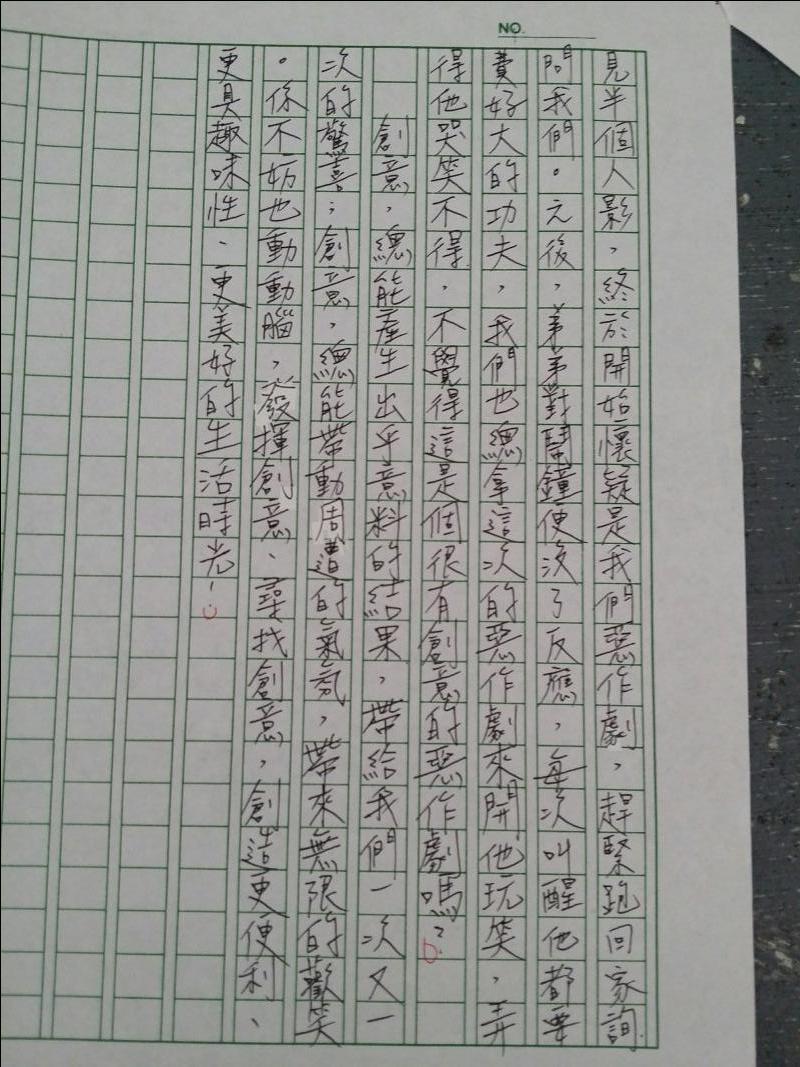 NO.
見半個人影，終於開始懷疑是我們惡作劇，趕緊跑回家詢
問我們。元後，弟弟對鬧鐘便沒了反應，每次叫醒他都要
費好大的功夫，我們也總拿這次的惡作劇來開他玩笑，弄
得他哭笑不得，不覺得這是個很有創意的惡作劇嗎？
創意，總能產生出乎意料的結果，帶給我們一次又一
次的驚喜；創意，總能帶動周遭的氣氛，帶來無限的歡笑
。你不妨也動動腦，發揮創意、尋找創意，創造更便利、
更具趣味性、更美好的生活時光！